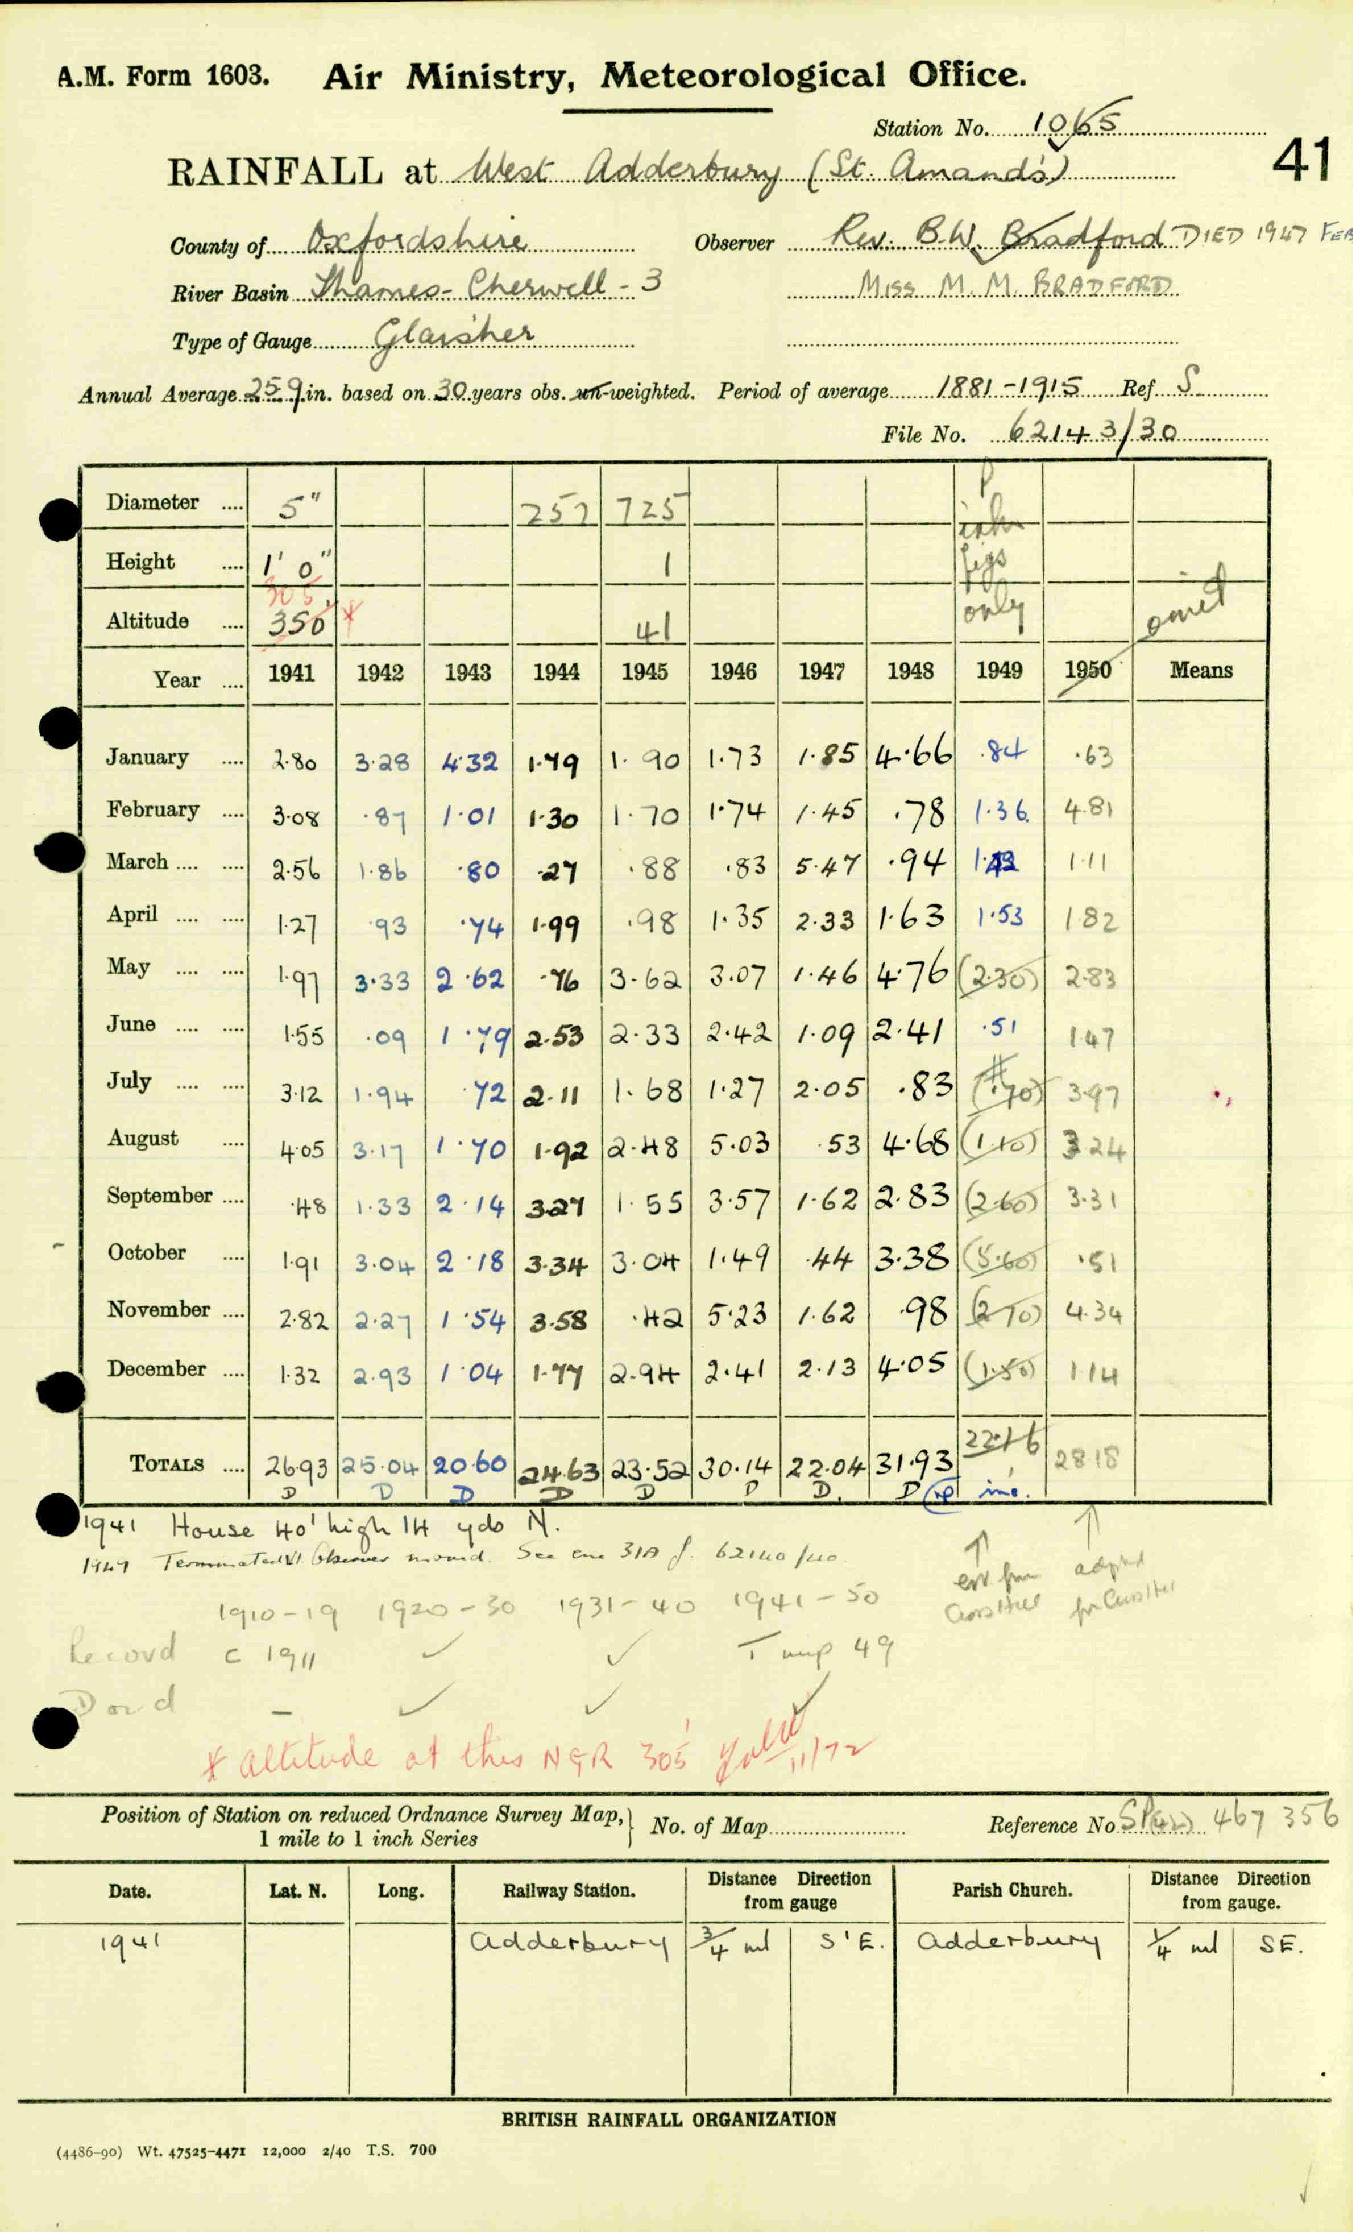 A.M. Form 1603. Air Ministry, Meteorological Office.
Station No. 1065
41
RAINFALL at West Adderbury (St. Amand's)
County of Oxfordshire Observer Rev. B.W. Bradford DIED 1947 FEB
River Basin Thames - Cherwell - 3 MISS M. M. BRADFORD
Type of Gauge Glaisher
Annual Average 25.9 in. based on 30 years obs. un-weighted. Period of average 1881-1915 Ref S
File No. 62143/30
Diameter .... 5" 257 725 P
inhr figs only
Height .... 1' 0" 1
305
Altitude .... 350 * 41 omit
Year .... 1941 1942 1943 1944 1945 1946 1947 1948 1949 1950 Means
January .... 2.80 3.28 4.32 1.79 1.90 1.73 1.85 4.66 .84 .63
February .... 3.08 .87 1.01 1.30 1.70 1.74 1.45 .78 1.36 4.81
March .... .... 2.56 1.86 .80 .27 .88 .83 5.47 .94 1.11
April .... .... 1.27 .93 .74 1.99 .98 1.35 2.33 1.63 1.53 1.82
May .... .... 1.97 3.33 2.62 .76 3.62 3.07 1.46 4.76 (2.30) 2.83
June .... .... 1.55 .09 1.79 2.53 2.33 2.42 1.09 2.41 .51 1.47
July .... .... 3.12 1.94 .72 2.11 1.68 1.27 2.05 .83 3.97
August .... 4.05 3.17 1.70 1.92 2.48 5.03 .53 4.68 (1.10) 3.24
September .... .48 1.33 2.14 3.27 1.55 3.57 1.62 2.83 (2.60) 3.31
October .... 1.91 3.04 2.18 3.34 3.04 1.49 .44 3.38 (5.60) .51
November .... 2.82 2.27 1.54 3.58 .42 5.23 1.62 .98 (2.70) 4.34
December .... 1.32 2.93 1.04 1.77 2.94 2.41 2.13 4.05 (1.50) 1.14
TOTALS .... 26.93 25.04 20.60 24.63 23.52 30.14 22.04 31.93 22.16 28.18
D D D D D D D. D inc.
1941 House 40' high 14 yds N.
Terminated Observer moved. See enc 31A f. 62140/40
1910-19 1920-30 1931-40 1941-50
Record C 1911 ✓ ✓ T 49
D or d - ✓ ✓ ✓
* altitude at this NGR 305' 11/72
Position of Station on reduced Ordnance Survey Map, 1 mile to 1 inch Series } No. of Map Reference No SP(42) 467 356
Date. Lat. N. Long. Railway Station. Distance Direction from gauge Parish Church. Distance Direction from gauge.
1941 Adderbury 3/4 ml S'E. Adderbury 1/4 ml SE.
BRITISH RAINFALL ORGANIZATION
(4486-90) Wt. 47525-4471 12,000 2/40 T.S. 700